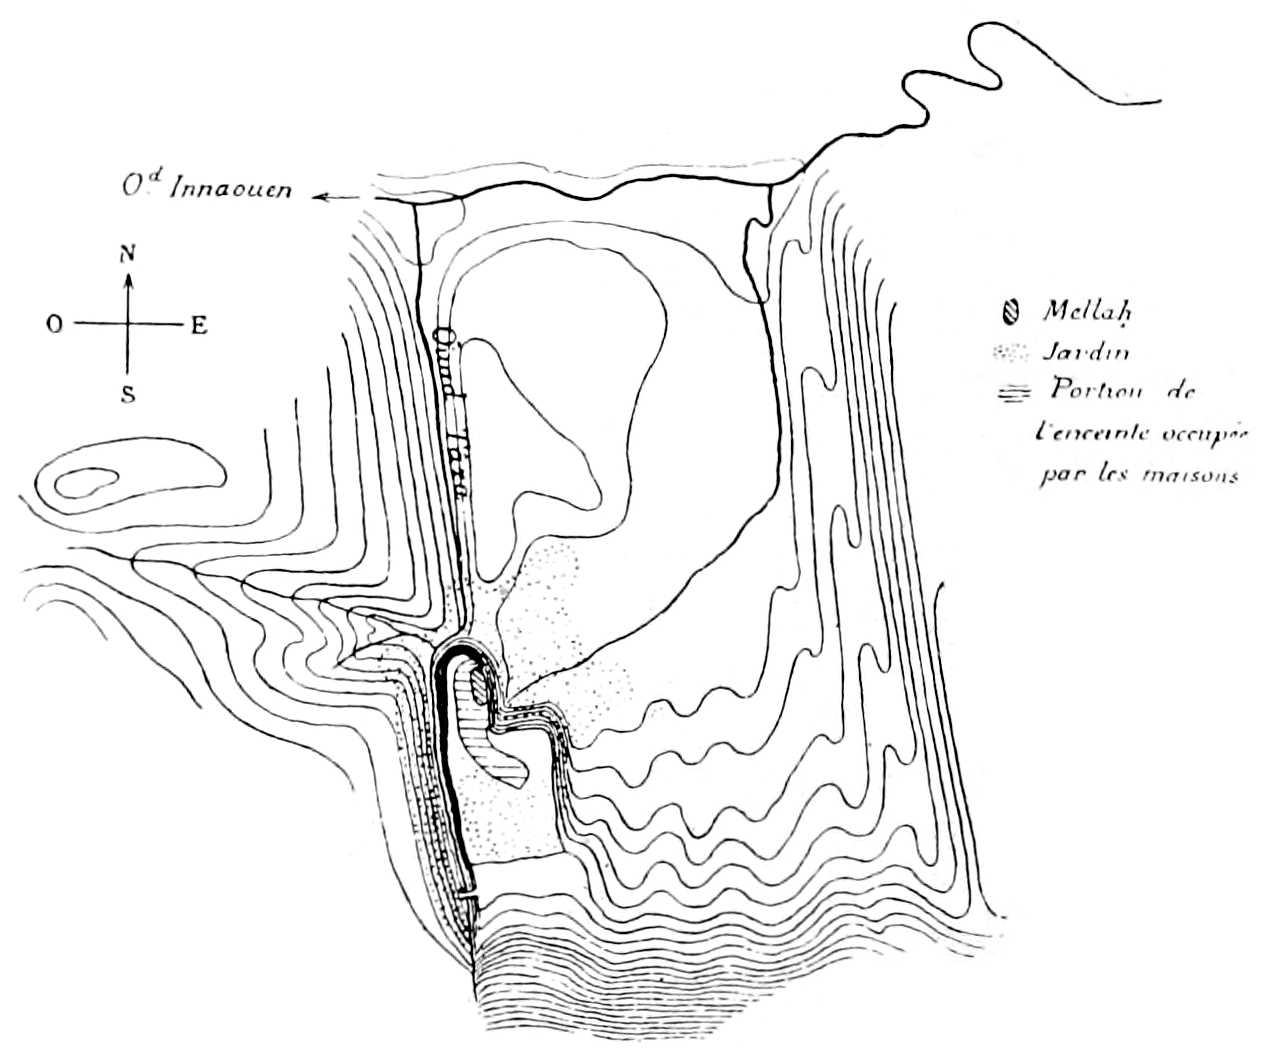 Oᵈ Innaouen
N
O E
S
Oued Taza
Mellaḥ
Jardin
Portion de
l'enceinte occupée
par les maisons